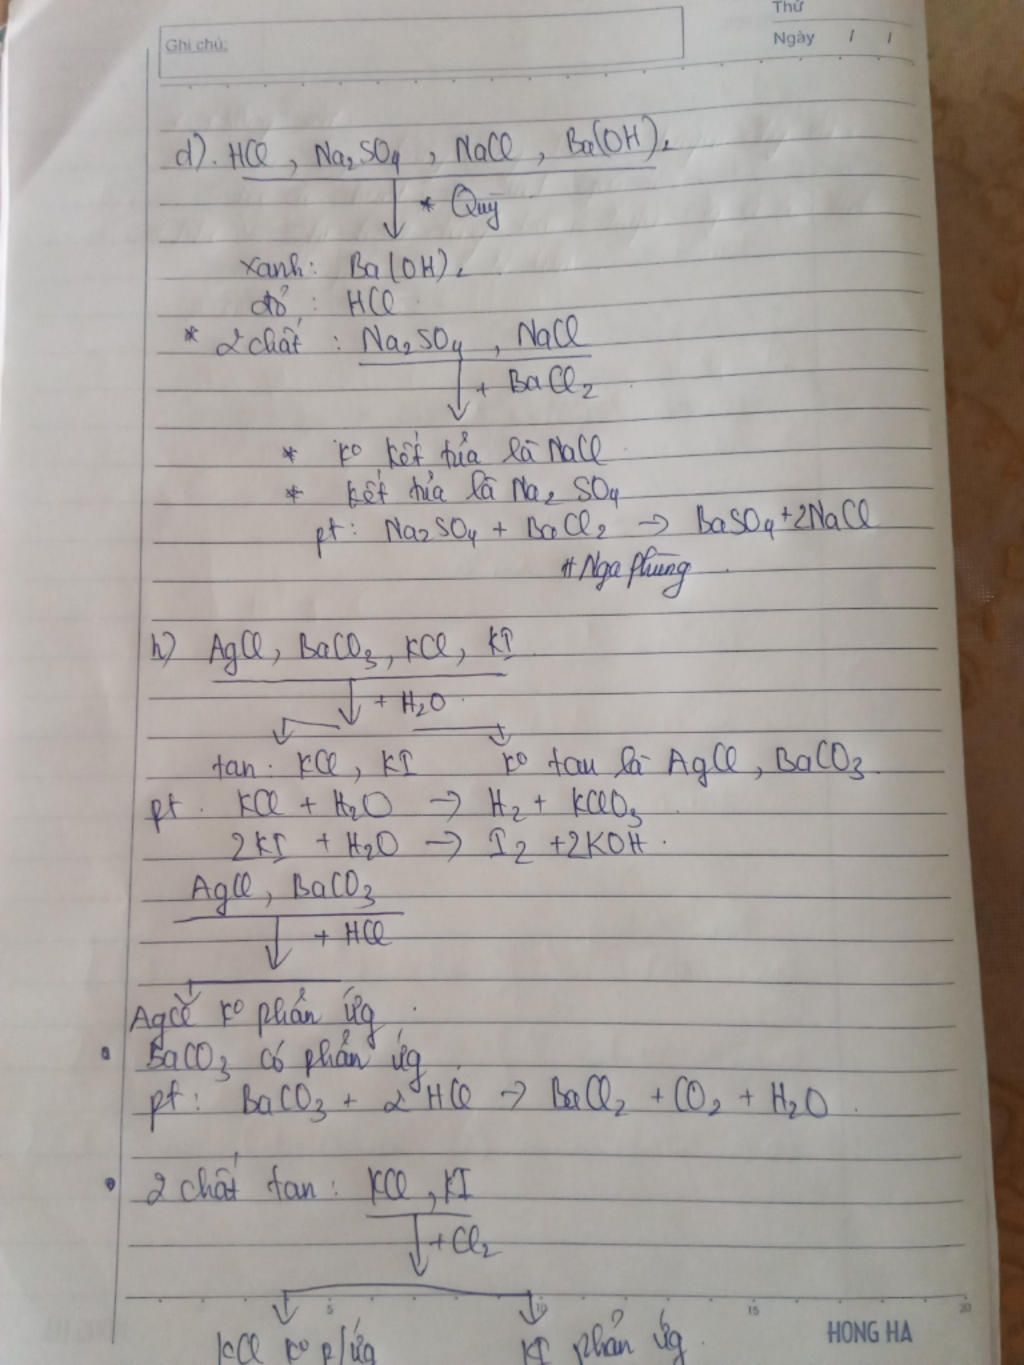 Thứ
Ghi chú:
Ngày / /
d). HCl, Na₂SO₄, NaCl, Ba(OH)₂
* Quỳ
xanh: Ba(OH)₂
đỏ: HCl
* 2 chất: Na₂SO₄, NaCl
+ BaCl₂
* k⁰ kết tủa là NaCl
* kết tủa là Na₂SO₄
pt: Na₂SO₄ + BaCl₂ → BaSO₄ + 2NaCl
# Nga Phùng
h) AgCl, BaCO₃, KCl, KI
+ H₂O
tan: KCl, KI k⁰ tan là AgCl, BaCO₃
pt. KCl + H₂O → H₂ + KClO₃
2KI + H₂O → I₂ + 2KOH.
AgCl, BaCO₃
+ HCl
AgCl k⁰ phản ứg.
BaCO₃ có phản ứg
pt: BaCO₃ + 2HCl → BaCl₂ + CO₂ + H₂O.
2 chất tan: KCl, KI
+ Cl₂
5 10 15 20
KCl k⁰ p/ứg KI phản ứg.
HONG HA